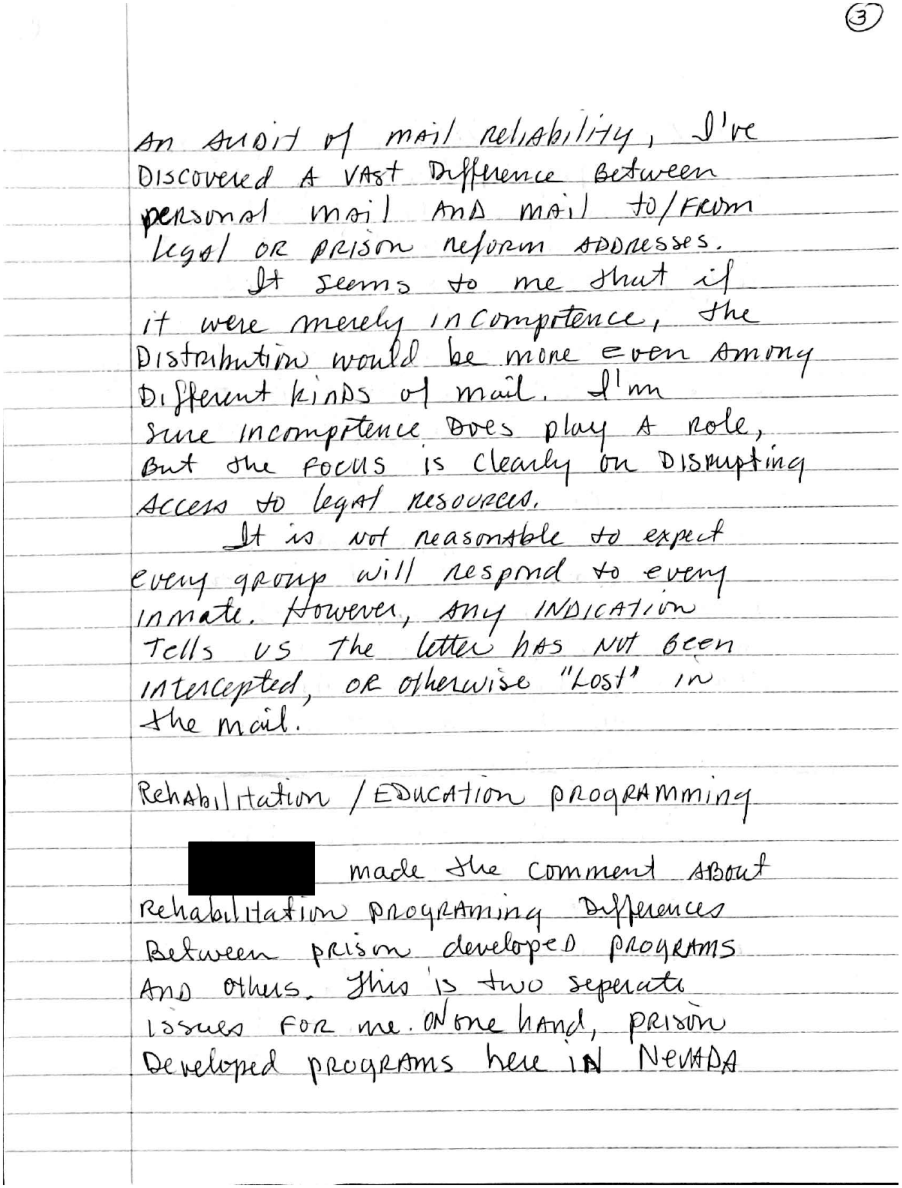 3
An Audit of mail reliability, I've
Discovered A vast Difference Between
personal mail AND mail to/FROM
legal OR prison reform ADDRESSES.
It seems to me that if
it were merely incompitence, the
Distribution would be more even Among
Different kinds of mail. I'm
sure incompitence Does play A role,
But the Focus is clearly on Disrupting
Access to legal resources.
It is not reasonable to expect
every group will respond to every
inmate. However, Any INDICATION
Tells us the letter has not Been
intercepted, OR otherwise "Lost" in
the mail.
Rehabilitation / EDUCATION programming
made the comment About
Rehabilitation programing Differences
Between prison developed programs
AND others. This is two seperate
issues FOR me. ON one hand, prison
Developed programs here IN NEVADA